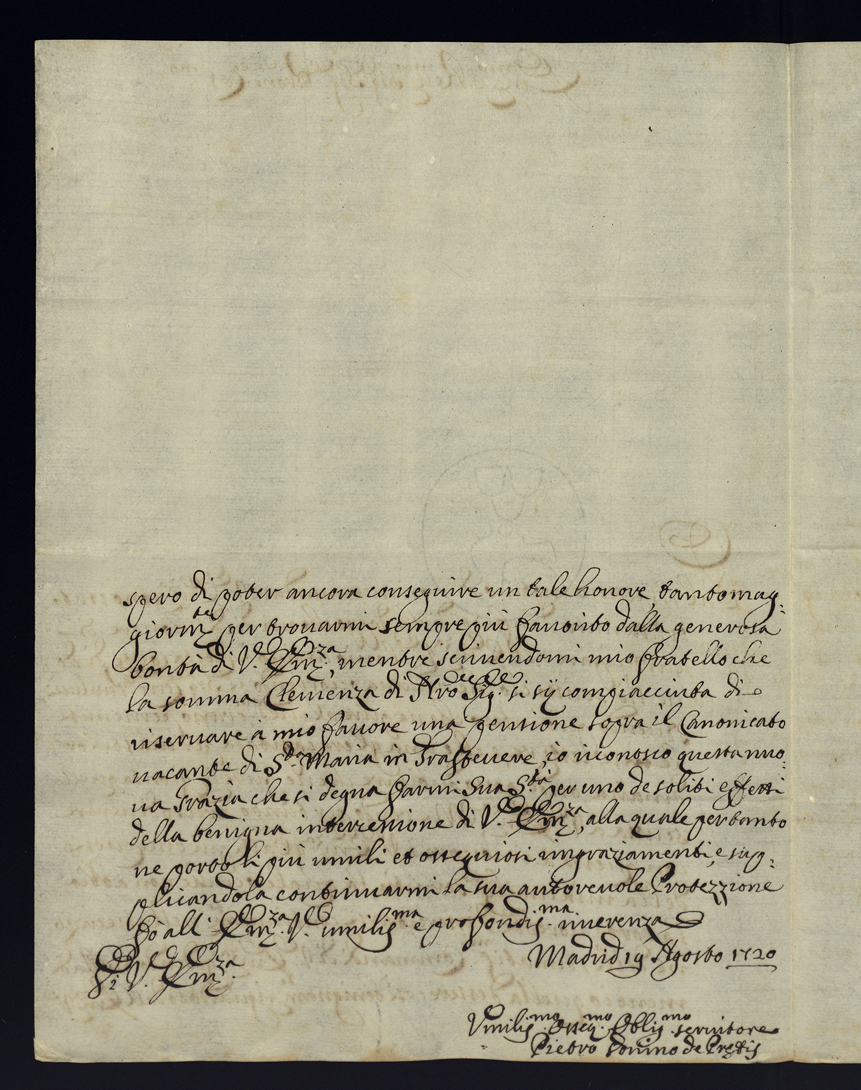 spero di poter ancora conseguire un tale honore, tanto mag:
giorm.te per trovarmi sempre più favorito dalla generosa
bontà di V. Em.za, mentre scrivendomi mio fratello che
la somma Clemenza di Nro Sig.re si sij compiacciuta di
riservare à mio favore una pensione sopra il Canonicato
vacante di S.ta Maria in Trastevere, io riconosco questa nuo:
va Grazia che si degna farmi Sua S.tà per uno de soliti effetti
della benigna intercessione di V. Em.za, alla quale pertanto
ne porto li più umili et ossequiosi ringraziamenti, e sup:
plicandola continuarmi la sua autorevole Protezzione
fò all' Em.za V. umilis.ma e profondis.ma riverenza
Madrid 19 Agosto 1720
Di V. Em.za
Umilis.mo Osseq.mo Oblig.mo servitore
Pietro Donino de Pretis